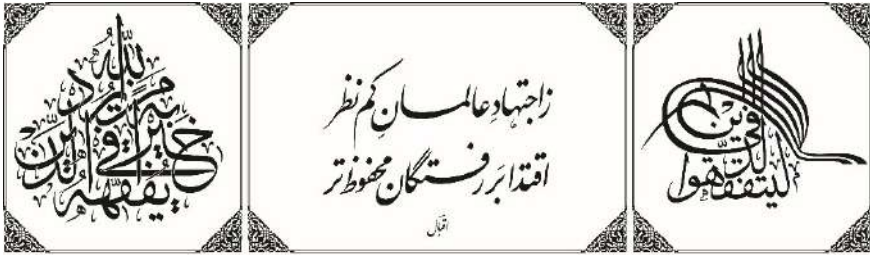 ليتفقهوا في الدين
ز اجتهادِ عالمانِ کم نظر
اقتدا بر رفتگان محفوظ تر
اقبال
من يرد الله به خيرا يفقهه في الدين